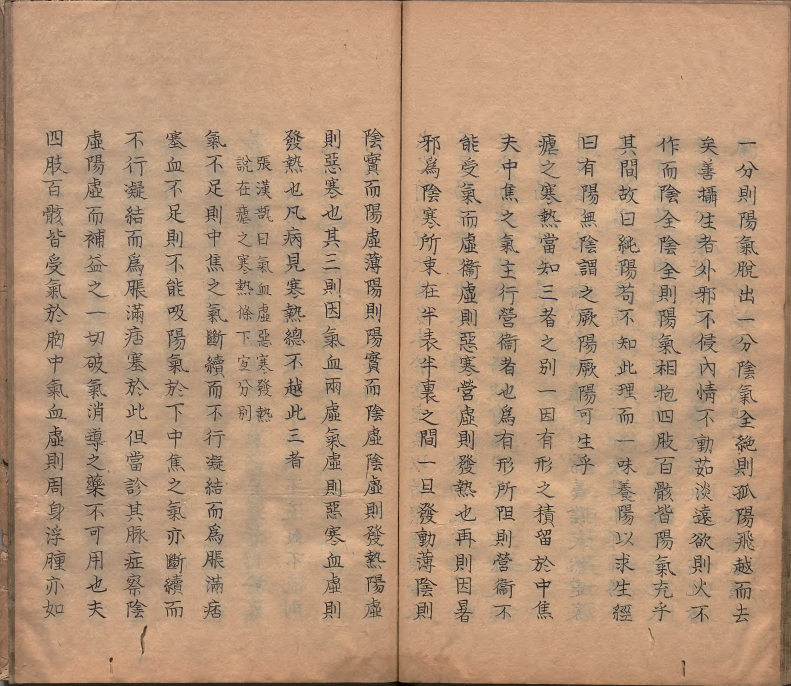 一分則陽氣脫出一分陰氣全絕則孤陽飛越而去
矣善攝生者外邪不侵內情不動茹淡遠欲則火不
作而陰全陰全則陽氣相抱四肢百骸皆陽氣充乎
其間故曰純陽苟不知此理而一味養陽以求生經
曰有陽無陰謂之厥陽厥陽可生乎
瘧之寒熱當知三者之別一因有形之積留於中焦
夫中焦之氣主行營衞者也爲有形所阻則營衞不
能受氣而虛衞虛則惡寒營虛則發熱也再則因暑
邪爲陰寒所束在半表半裏之間一旦發動薄陰則
陰實而陽虛薄陽則陽實而陰虛陰虛則發熱陽虛
則惡寒也其三則因氣血兩虛氣虛則惡寒血虛則
發熱也凡病見寒熱總不越此三者
張漢翫曰氣血虛惡寒發熱
說在瘧之寒熱條下宜分別
氣不足則中焦之氣斷續而不行凝結而爲脹滿痞
塞血不足則不能吸陽氣於下中焦之氣亦斷續而
不行凝結而爲脹滿痞塞於此但當診其脉症察陰
虛陽虛而補益之一切破氣消導之藥不可用也夫
四肢百骸皆受氣於胸中氣血虛則周身浮腫亦如